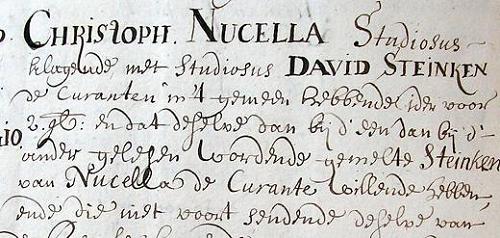 CHRISTOPH. NUCELLA Studiosus
klagende met Studiosus DAVID STEINKEN
de Curanten in 't gemeen hebbende ider voor
2. gl: en dat deselve dan bij d'een dan bij d'
ander gelesen wordende gemelte Steinken
van Nucella de Curante willende hebben
ende die niet voort sendende deselve van